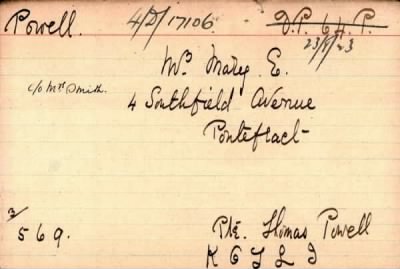 Powell. 4/D/17106. D.P. 64.P.
23/9/23
Mrs Mary E.
c/o Mrs Smith.
4 Southfield Avenue
Pontefract
3/
569. Pte. Thomas Powell
K O Y L I